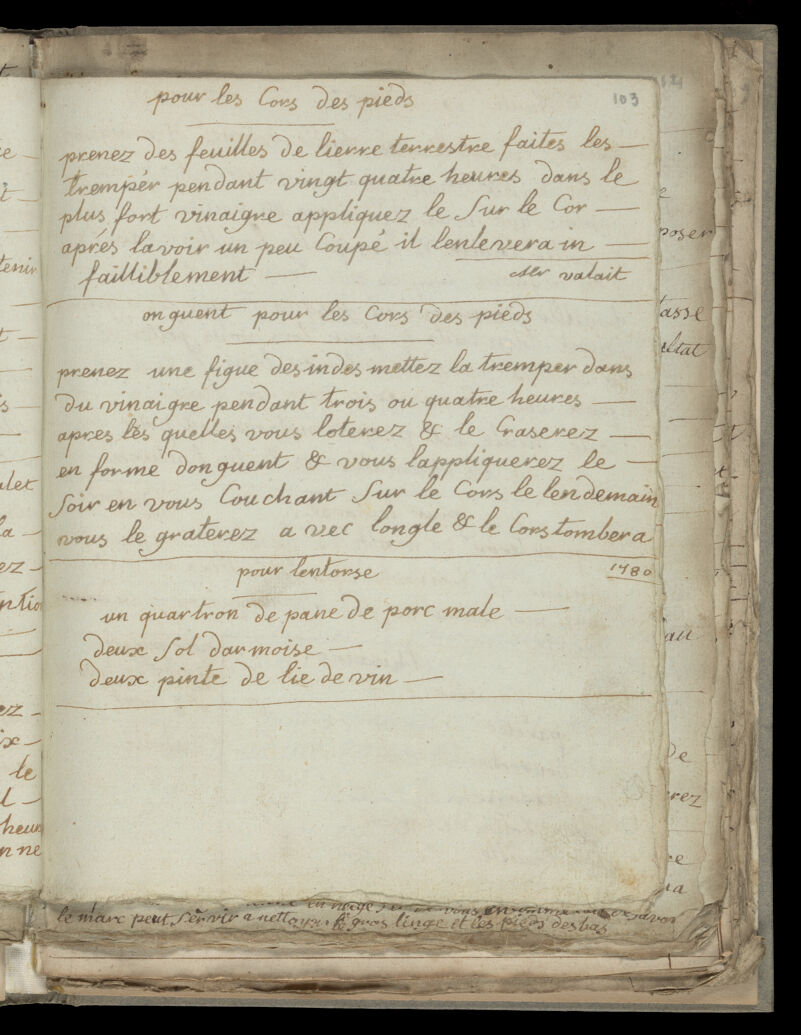 103
pour les Cors des pieds
prenez des feuilles de lierre terrestre faites les
tremper pendant vingt quatre heures dans le
plus fort vinaigre appliquez le sur le Cor
aprés lavoir un peu Coupé il lenlevera in
failliblement
Mr valait
onguent pour les Cors des pieds
prenez une figue desindes mettez la tremper dans
du vinaigre pendant trois ou quatre heures
apres les quelles vous loterez & le Craserez
en forme donguent & vous lappliquerez le
soir en vous Couchant sur le Cors le lendemain
vous le graterez avec longle & le Cors tombera
pour lentorse
1780
un quartron de pane de porc male
deux sol darmoise
deux pinte de lie de vin
le marc peut servir a nettoyer gros linge et les pieds des bas
poser
tasse
ultat
au
de
rez
tenir
alet
ez
le
heur
nne